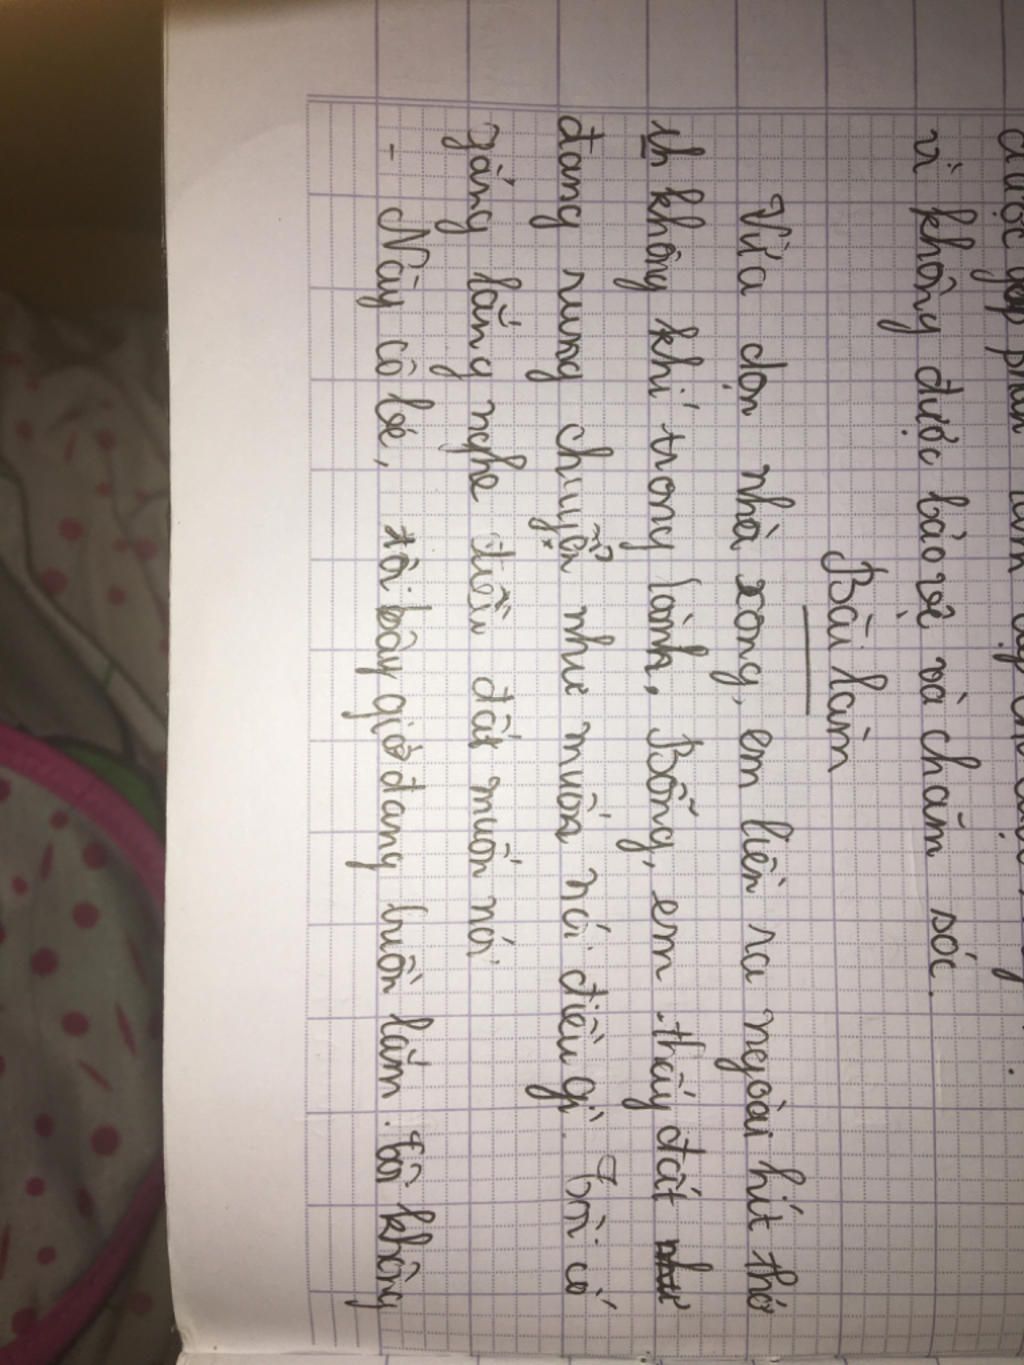 được
vì không được bảo vệ và chăm sóc.
Bài làm
Vừa dọn nhà xong, em liền ra ngoài hít thở
không khí trong lành. Bỗng, em thấy đất
đang rung chuyển như muốn nói điều gì. Tôi cố
gắng lắng nghe điều đất muốn nói
- Này cô bé, tôi bây giờ đang buồn lắm. Tôi không